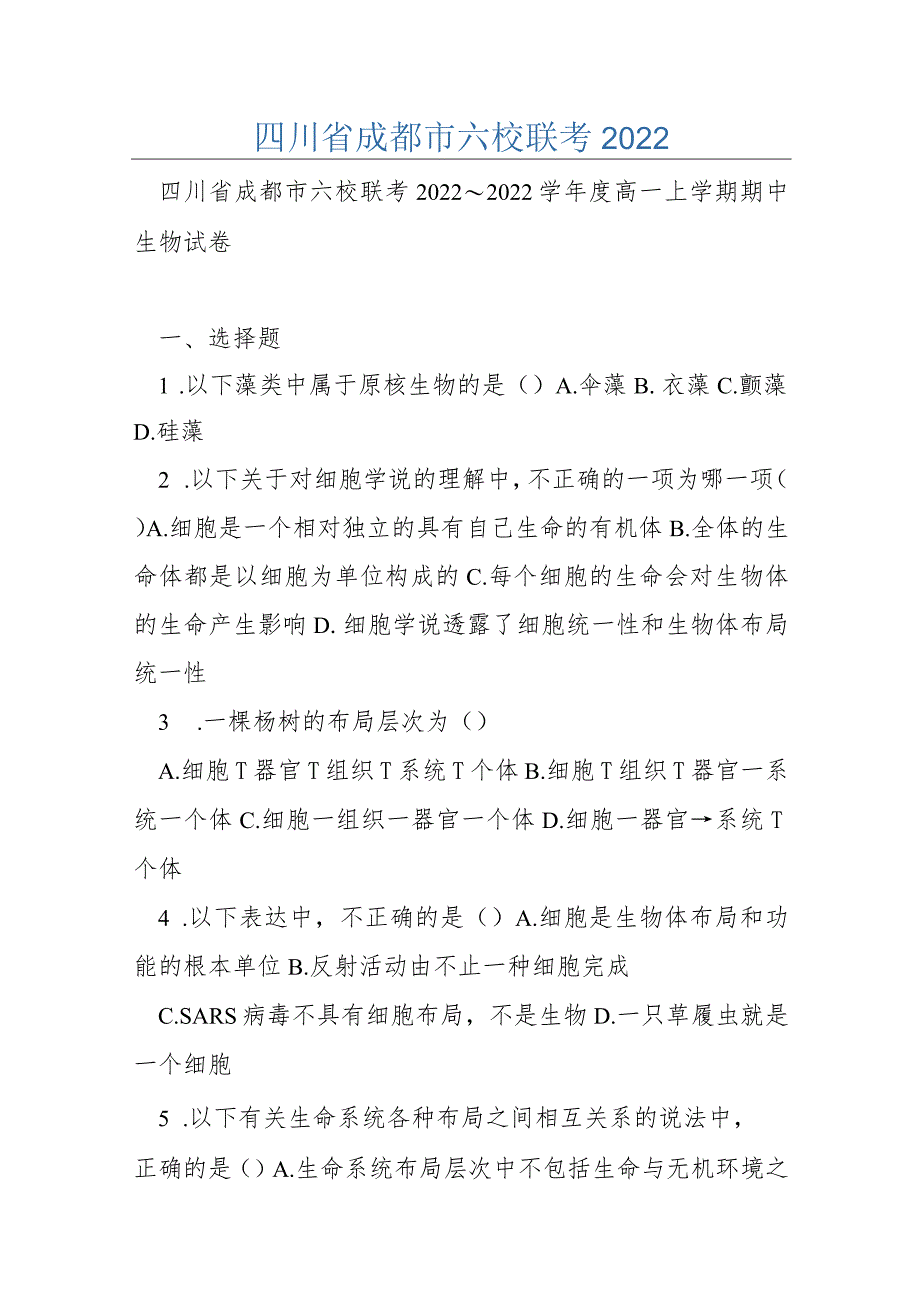 四川省成都市六校联考 2022
四川省成都市六校联考 2022～2022 学年度高一上学期期中
生物试卷
一、选择题
1 .以下藻类中属于原核生物的是（）A.伞藻 B. 衣藻 C.颤藻
D.硅藻
2 .以下关于对细胞学说的理解中，不正确的一项为哪一项（
）A.细胞是一个相对独立的具有自己生命的有机体 B.全体的生
命体都是以细胞为单位构成的 C.每个细胞的生命会对生物体
的生命产生影响 D. 细胞学说透露了细胞统一性和生物体布局
统一性
3 .一棵杨树的布局层次为（）
A.细胞 T 器官 T 组织 T 系统 T 个体 B.细胞 T 组织 T 器官一系
统一个体 C.细胞一组织一器官一个体 D.细胞一器官→系统 T
个体
4 .以下表达中，不正确的是（）A.细胞是生物体布局和功
能的根本单位 B.反射活动由不止一种细胞完成
C.SARS 病毒不具有细胞布局，不是生物 D.一只草履虫就是
一个细胞
5 .以下有关生命系统各种布局之间相互关系的说法中，
正确的是（）A.生命系统布局层次中不包括生命与无机环境之